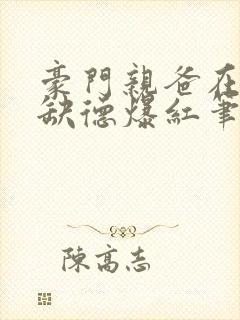 豪門親爸在
缺德爆紅筆
陳高志